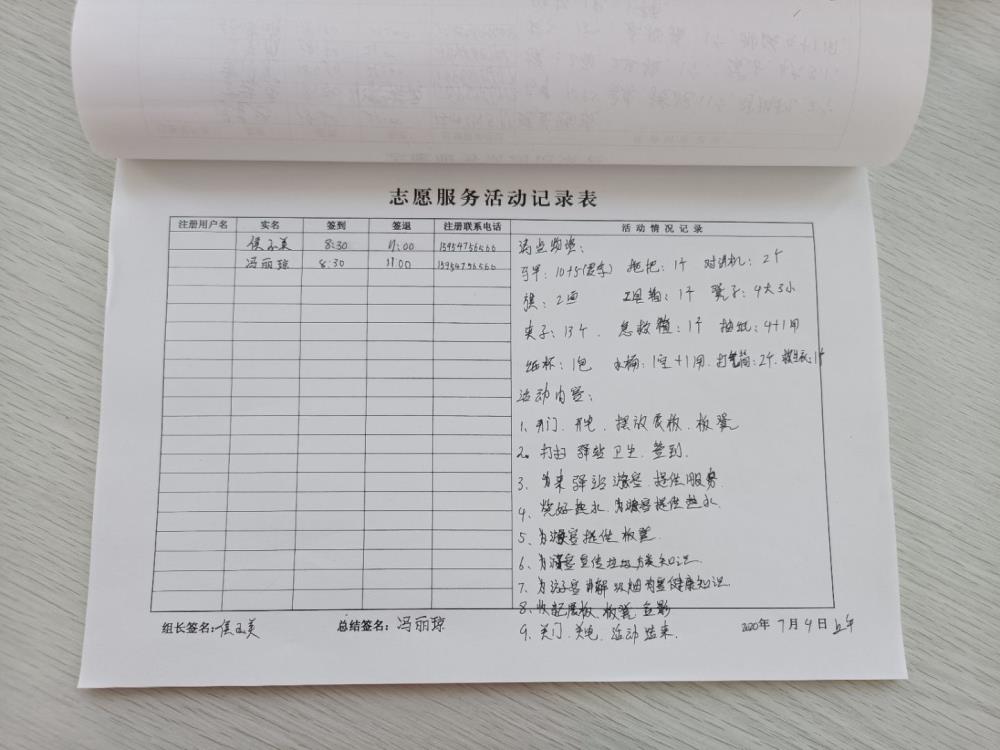 志愿服务活动记录表
注册用户名 实名 签到 签退 注册联系电话 活动情况记录
侯玉美 8:30 11:00
冯丽琼 8:30 11:00
清点物资:
马甲: 10+5(党字) 拖把: 1个 对讲机: 2个
旗: 2面 工具箱: 1个 凳子: 4大3小
夹子: 13个. 急救箱: 1个 抽纸: 4+1用
纸杯: 1包 水桶: 1空+1用. 打气筒: 2个. 救生衣: 1个
活动内容:
1、开门. 开电. 摆放展板. 板凳
2. 打扫驿站卫生. 签到.
3、为来驿站游客提供服务.
4、烧好热水. 为游客提供热水.
5、为游客提供板凳.
6、为游客宣传垃圾分类知识.
7、为游客讲解 健康知识.
8、收起展板. 板凳. 合影
9、关门. 关电. 活动结束.
组长签名: 侯玉美 总结签名: 冯丽琼 2020年7月4日 上午